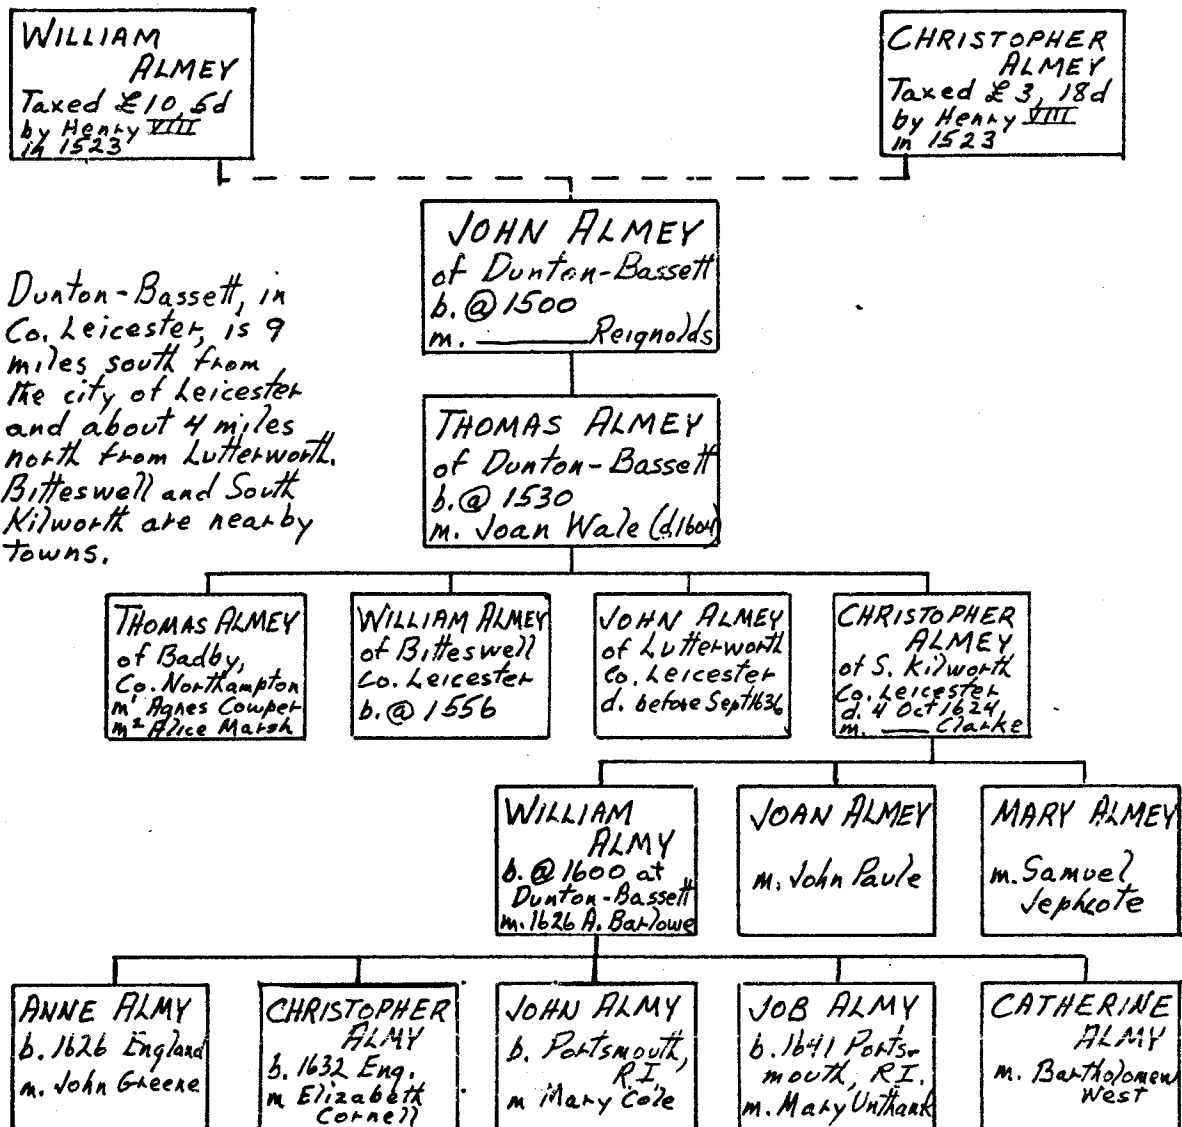 WILLIAM
ALMEY
Taxed £10, 5d
by Henry VIII
in 1523
CHRISTOPHER
ALMEY
Taxed £3, 18d
by Henry VIII
in 1523
JOHN ALMEY
of Dunton-Bassett
b. @ 1500
m. ______ Reignolds
Dunton-Bassett, in
Co. Leicester, is 9
miles south from
the city of Leicester
and about 4 miles
north from Lutterworth.
Bitteswell and South
Kilworth are nearby
towns.
THOMAS ALMEY
of Dunton-Bassett
b. @ 1530
m. Joan Wale (d.1604)
THOMAS ALMEY
of Badby,
Co. Northampton
m¹ Agnes Cowper
m² Alice Marsh
WILLIAM ALMEY
of Bitteswell
Co. Leicester
b. @ 1556
JOHN ALMEY
of Lutterworth
Co. Leicester
d. before Sept 1636
CHRISTOPHER
ALMEY
of S. Kilworth
Co. Leicester
d. 4 Oct 1624
m. ___ Clarke
WILLIAM
ALMY
b. @ 1600 at
Dunton-Bassett
m. 1626 A. Barlowe
JOAN ALMEY
m. John Paule
MARY ALMEY
m. Samuel
Jephcote
ANNE ALMY
b. 1626 England
m. John Greene
CHRISTOPHER
ALMY
b. 1632 Eng.
m Elizabeth
Cornell
JOHN ALMY
b. Portsmouth,
R.I.
m Mary Cole
JOB ALMY
b. 1641 Ports-
mouth, R.I.
m. Mary Unthank
CATHERINE
ALMY
m. Bartholomew
West